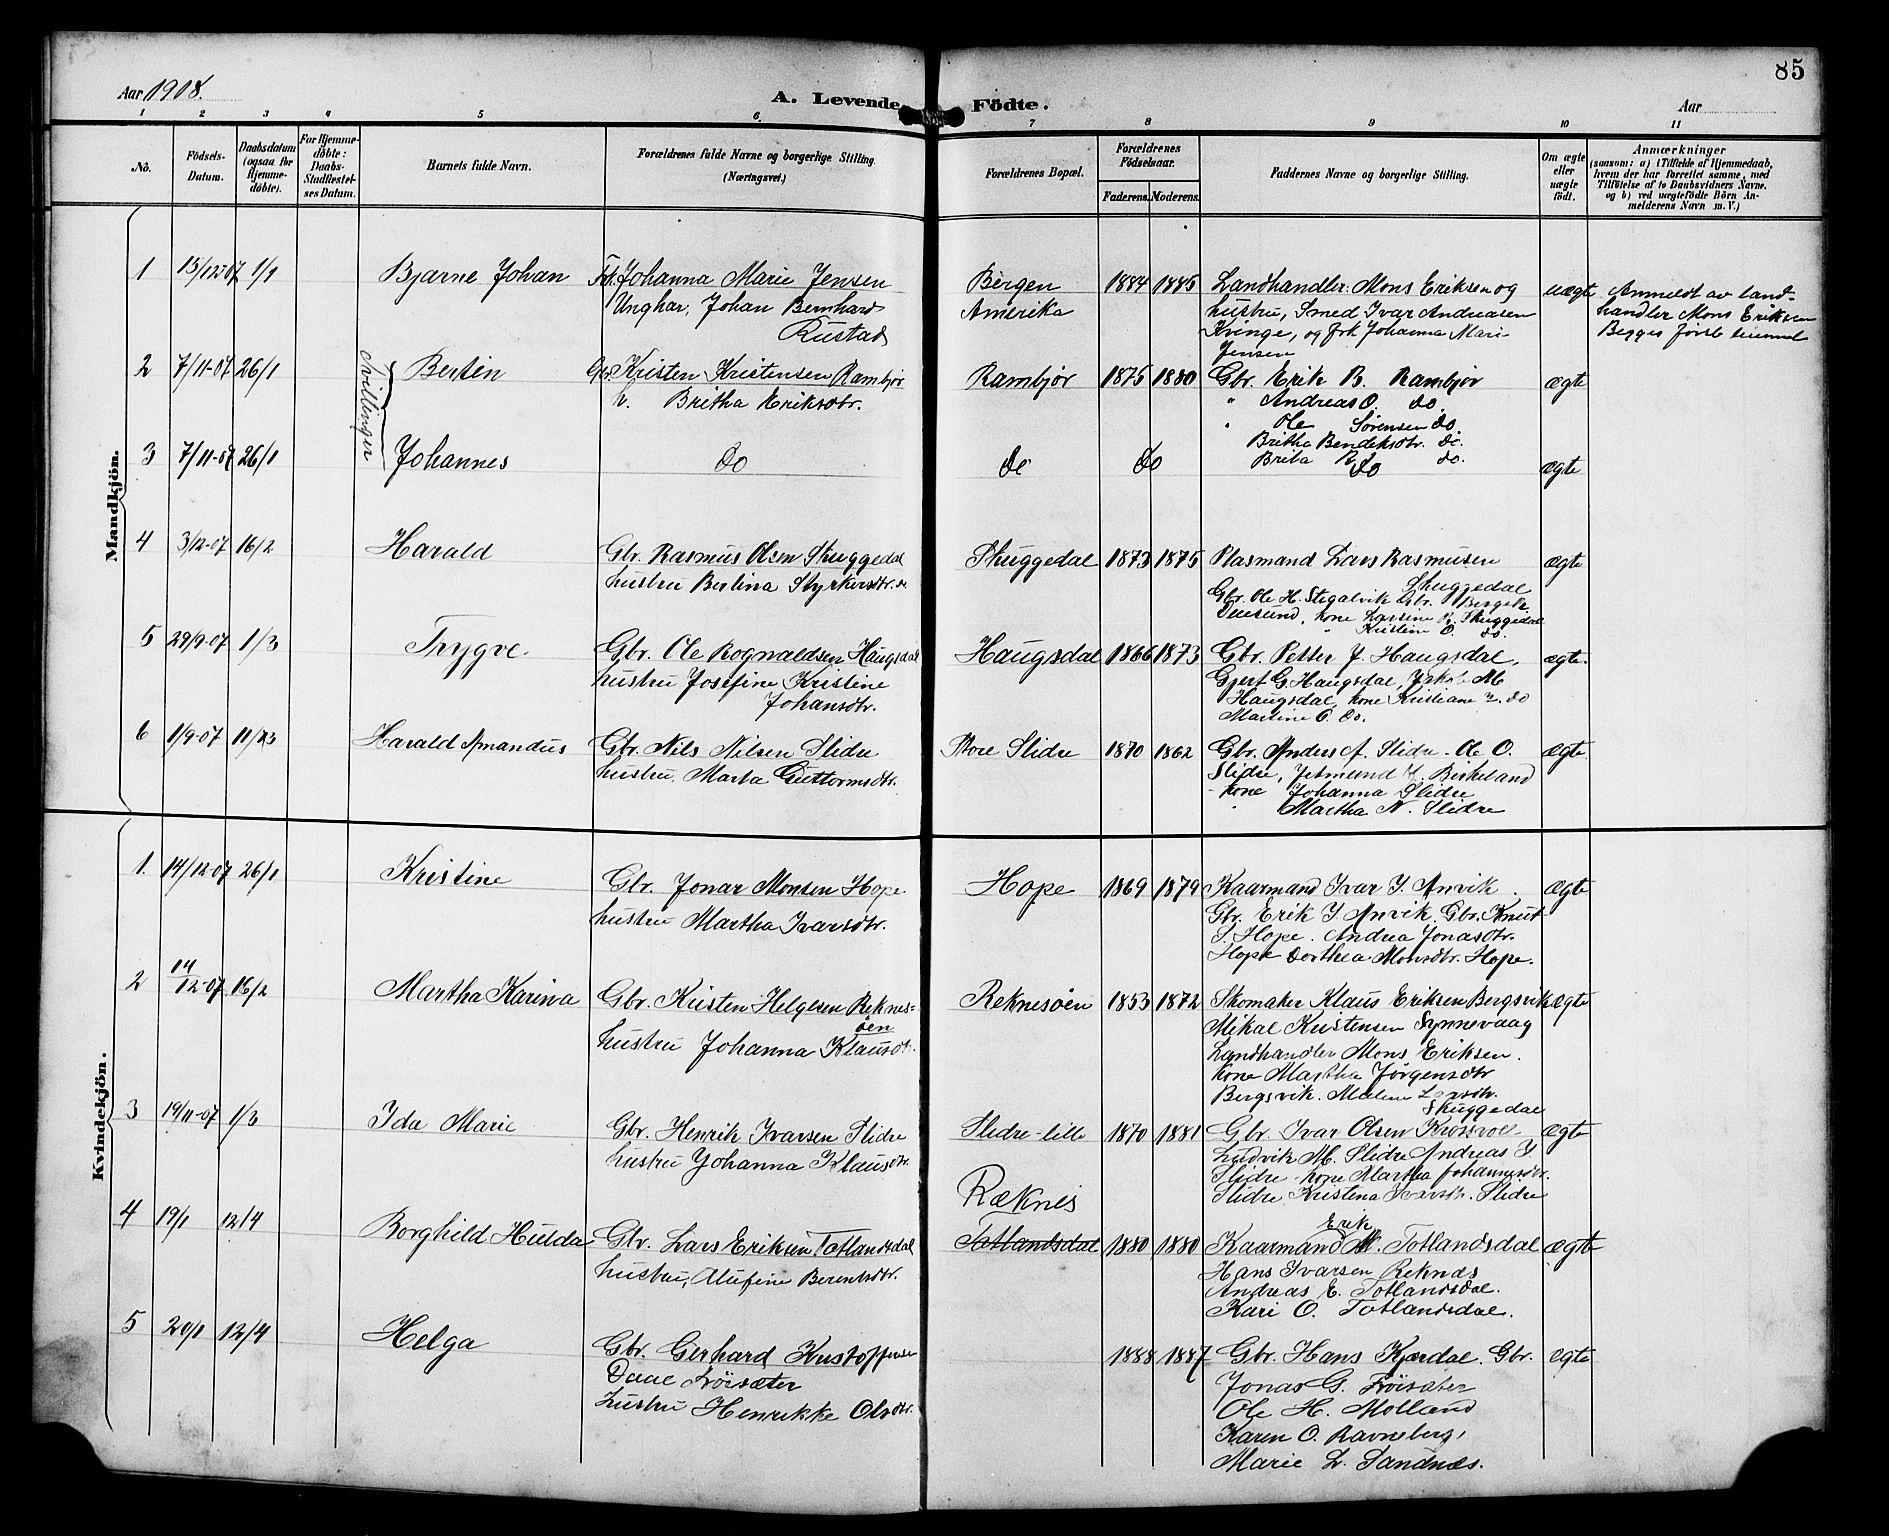 85
Aar 1908.
A. Levende Födte.
Aar
1 2 3 4 5 6. 7 8 9 10 11
No.
Födsels-Datum.
Daabsdatum (ogsaa for Hjemme-döbte).
For Hjemme-döbte: Daabs-Stadfæstel-ses Datum.
Barnets fulde Navn.
Forældrenes fulde Navne og borgerlige Stilling.
(Næringsvei.)
Forældrenes Bopæl.
Forældrenes Födselsaar.
Faderens. Moderens.
Faddernes Navne og borgerlige Stilling.
Om ægte eller uægte födt.
Anmærkninger
(saasom: a) i Tilfælde af Hjemmedaab,
hvem der har forrettet samme, med
Tilföielse af to Daabsvidners Navne,
og b) ved uægtefödte Börn An-
melderens Navn m. V.)
Mandkjön.
1 15/12-07 1/1 Bjarne Johan Johanna Marie Jensen Bergen 1884 1885 Landhandler Mons Eriksen og uægte Anmeldt av land-
Ungkar, Johan Bernhard Amerika hustru, Smed Ivar Andreasen handler Mons Eriksen
Rustad Kvinge, og frk Johanna Marie Begges første
Jensen
2 7/11-07 26/1 Bertin Gbr. Kristen Kristensen Rambjør Rambjør 1875 1880 Gbr. Erik B. Rambjør ægte
Tvillinger
h. Britha Eriksdtr. " Andreas O. do.
" Ole Sørensen do.
Britha Bendiksdtr. do.
3 7/11-07 26/1 Johannes do do do Brita R. do. do ægte
4 3/12-07 16/2 Harald Gbr. Rasmus Olsen Skuggedal Skuggedal 1873 1875 Plasmand Lars Rasmusen ægte
hustru Berlina Styrkersdtr. do Skuggedal
Gbr. Ole H. Stegalvik Gbr.
kone Larsine R. Skuggedal
" Kristine O. do.
5 29/9-07 1/3 Trygve Gbr. Ole Rognvaldsen Haugsdal Haugsdal 1866 1873 Gbr. Petter J. Haugsdal, ægte.
hustru Josefine Kristine Gjert G. Haugsdal, Jakob M
Johansdtr. Haugsdal, kone Kristiane do
Martine O. do.
6 1/9-07 11/3 Harald Amandus Gbr. Nils Nilsen Slidre Store Slidre 1870 1862 Gbr. Anders A. Slidre - Ole O. ægte
hustru, Marta Guttormsdtr. Slidre, Jetmund H. Birkeland
- kone Johanna Slidre
" Martha N. Slidre
Kvindekjön.
1. 14/12-07 26/1 Kristine Gbr. Jonar Monsen Hope Hope 1869 1879 Kaarmand Ivar J. Anvik. ægte
hustru Martha Ivarsdtr. Gbr. Erik J. Anvik. Gbr. Knut
J. Hope. Andrea Jonasdtr.
Hope Dorthea Monsdtr. Hope.
2 14/12-07 16/2 Martha Karina Gbr. Kristen Helgesen Reknes- Reknesøen 1853 1872 Skomaker Klaus Eriksen Bergsvik ægte
øen Mikal Kristensen Synnevaag
hustru Johanna Klausdtr. Landhandler Mons Eriksen.
kone Martha Jørgensdtr
Bergsvik. Malene Larsdtr.
Skuggedal
3 19/11-07 1/3 Ida Marie Gbr. Henrik Ivarsen Slidre Slidre-lille 1870 1881 Gbr. Ivar Olsen ægte
hustru Johanna Klausdtr. Ludvik M. Slidre Andreas I
Slidre - kone Martha Johannesdtr.
Slidre Kristena Ivarsdtr. Slidre
4 19/1 12/4 Borghild Hulda Gbr. Lars Eriksen Totlandsdal Ræknes Totlandsdal 1880 1880 Kaarmand Erik M. Totlandsdal ægte
hustru, Alufine Berentsdtr. Hans Ivarsen Reknes
Andreas E. Totlandsdal.
Kari O. Totlandsdal.
5 20/1 12/4 Helga Gbr. Gerhard Kristoffersen 1888 1887 Gbr. Hans Kjærdal. Gbr. ægte
Daae Frøisæter Jonas G. Frøisæter
hustru Henrikke Olsdtr. Ole H. Molland
Karen O. Ravneberg,
Marie L. Sandnæs.